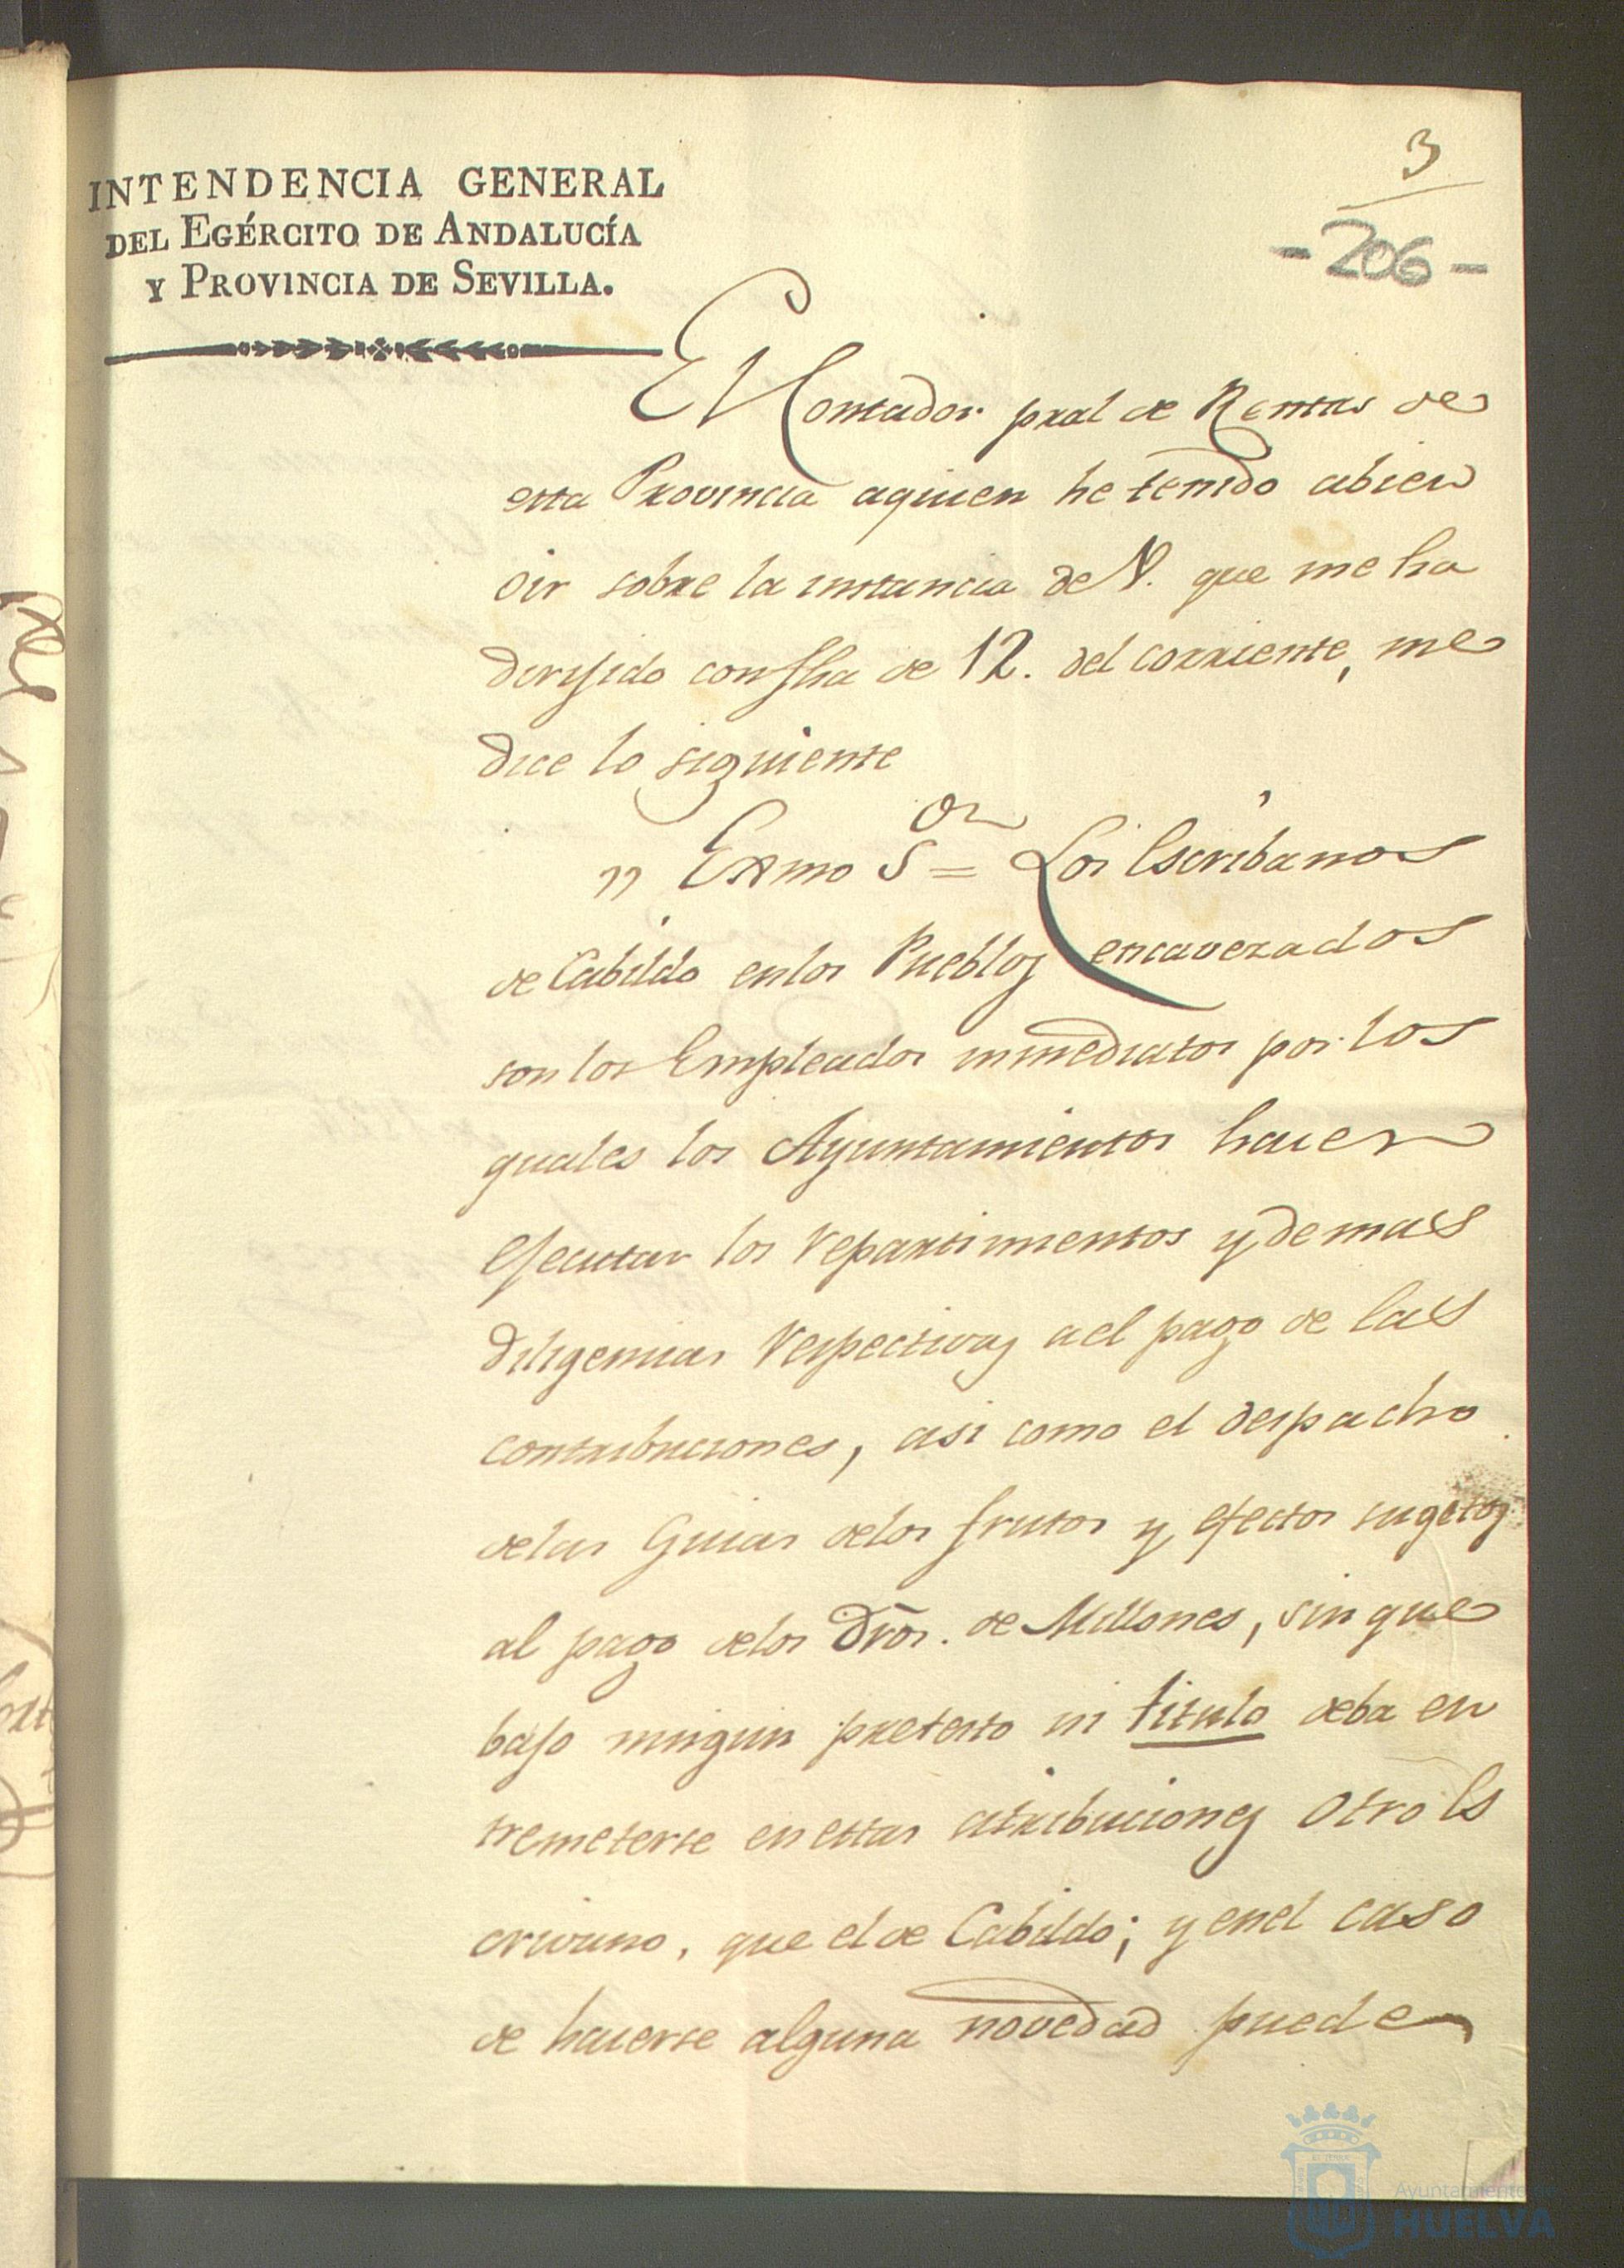 3
-206-
INTENDENCIA GENERAL
DEL EGÉRCITO DE ANDALUCÍA
Y PROVINCIA DE SEVILLA.
El Contador pral de Rentas de
esta Provincia aquien he tenido abien
oir sobre la instancia de V. que me ha
dirijido con fha de 12. del corriente, me
dice lo siguiente
" Exmo Sor = Los Escribanos
de Cabildo enlos Pueblos encavezados
son los Empleados inmediatos por los
quales los Ayuntamientos hacen
ejecutar los repartimientos y demas
diligencias respectivas a el pago de las
contribuciones, asi como el despacho
delas Guias delos frutos y efectos sugetos
al pago delos Dros. de Millones, sin que
bajo ningun pretesto ni titulo deba en
tremeterse en estas atribuciones otro Es
crivano, que el de Cabildo; y enel caso
de hacerse alguna novedad puede
Ayuntamiento de
HUELVA